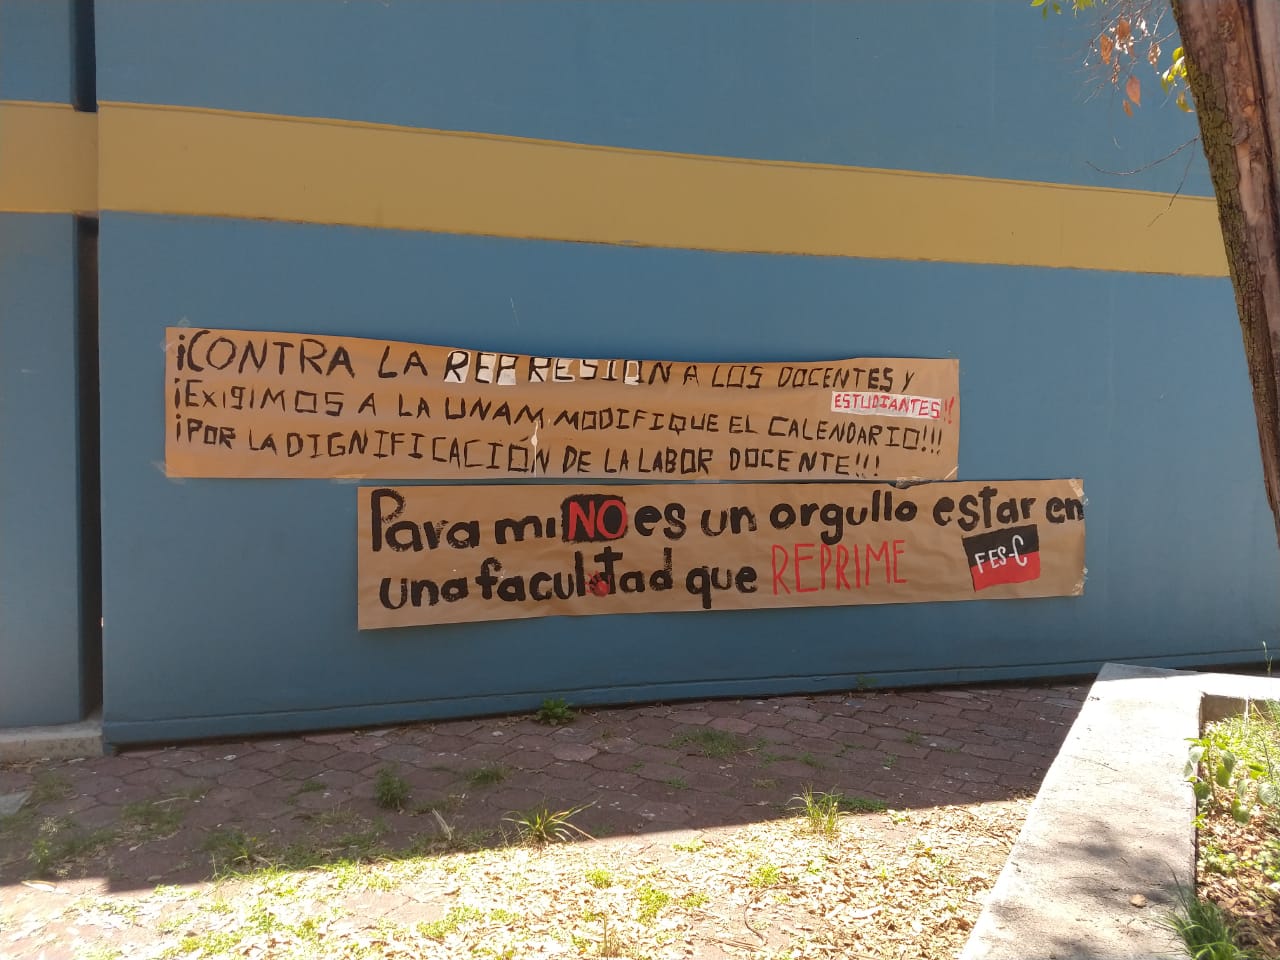 ¡CONTRA LA REPRESIÓN A LOS DOCENTES Y
ESTUDIANTES!!
¡EXIGIMOS A LA UNAM MODIFIQUE EL CALENDARIO!!!
¡POR LA DIGNIFICACIÓN DE LA LABOR DOCENTE!!!
Para mi NO es un orgullo estar en
una facultad que REPRIME
FES-C